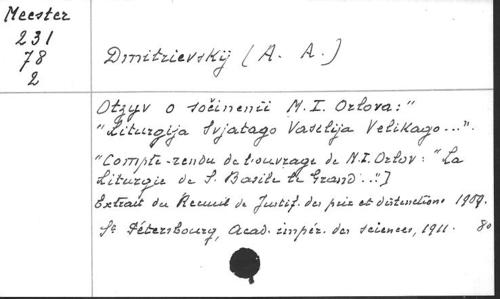 Meester
231
78
2
Dmitrievskij (A. A.)
Otzyv o sočinenii M. I. Orlova: "
"Liturgija Svjatago Vasilija Velikago...".
"Compte-rendu de l'ouvrage de M.I. Orlov : "La
Liturgie de S. Basile le Grand..."]
Extrait du Recueil de Justif. des prix et distinctions 1909.
St Pétersbourg, Acad. impér. des sciences, 1911. 8o